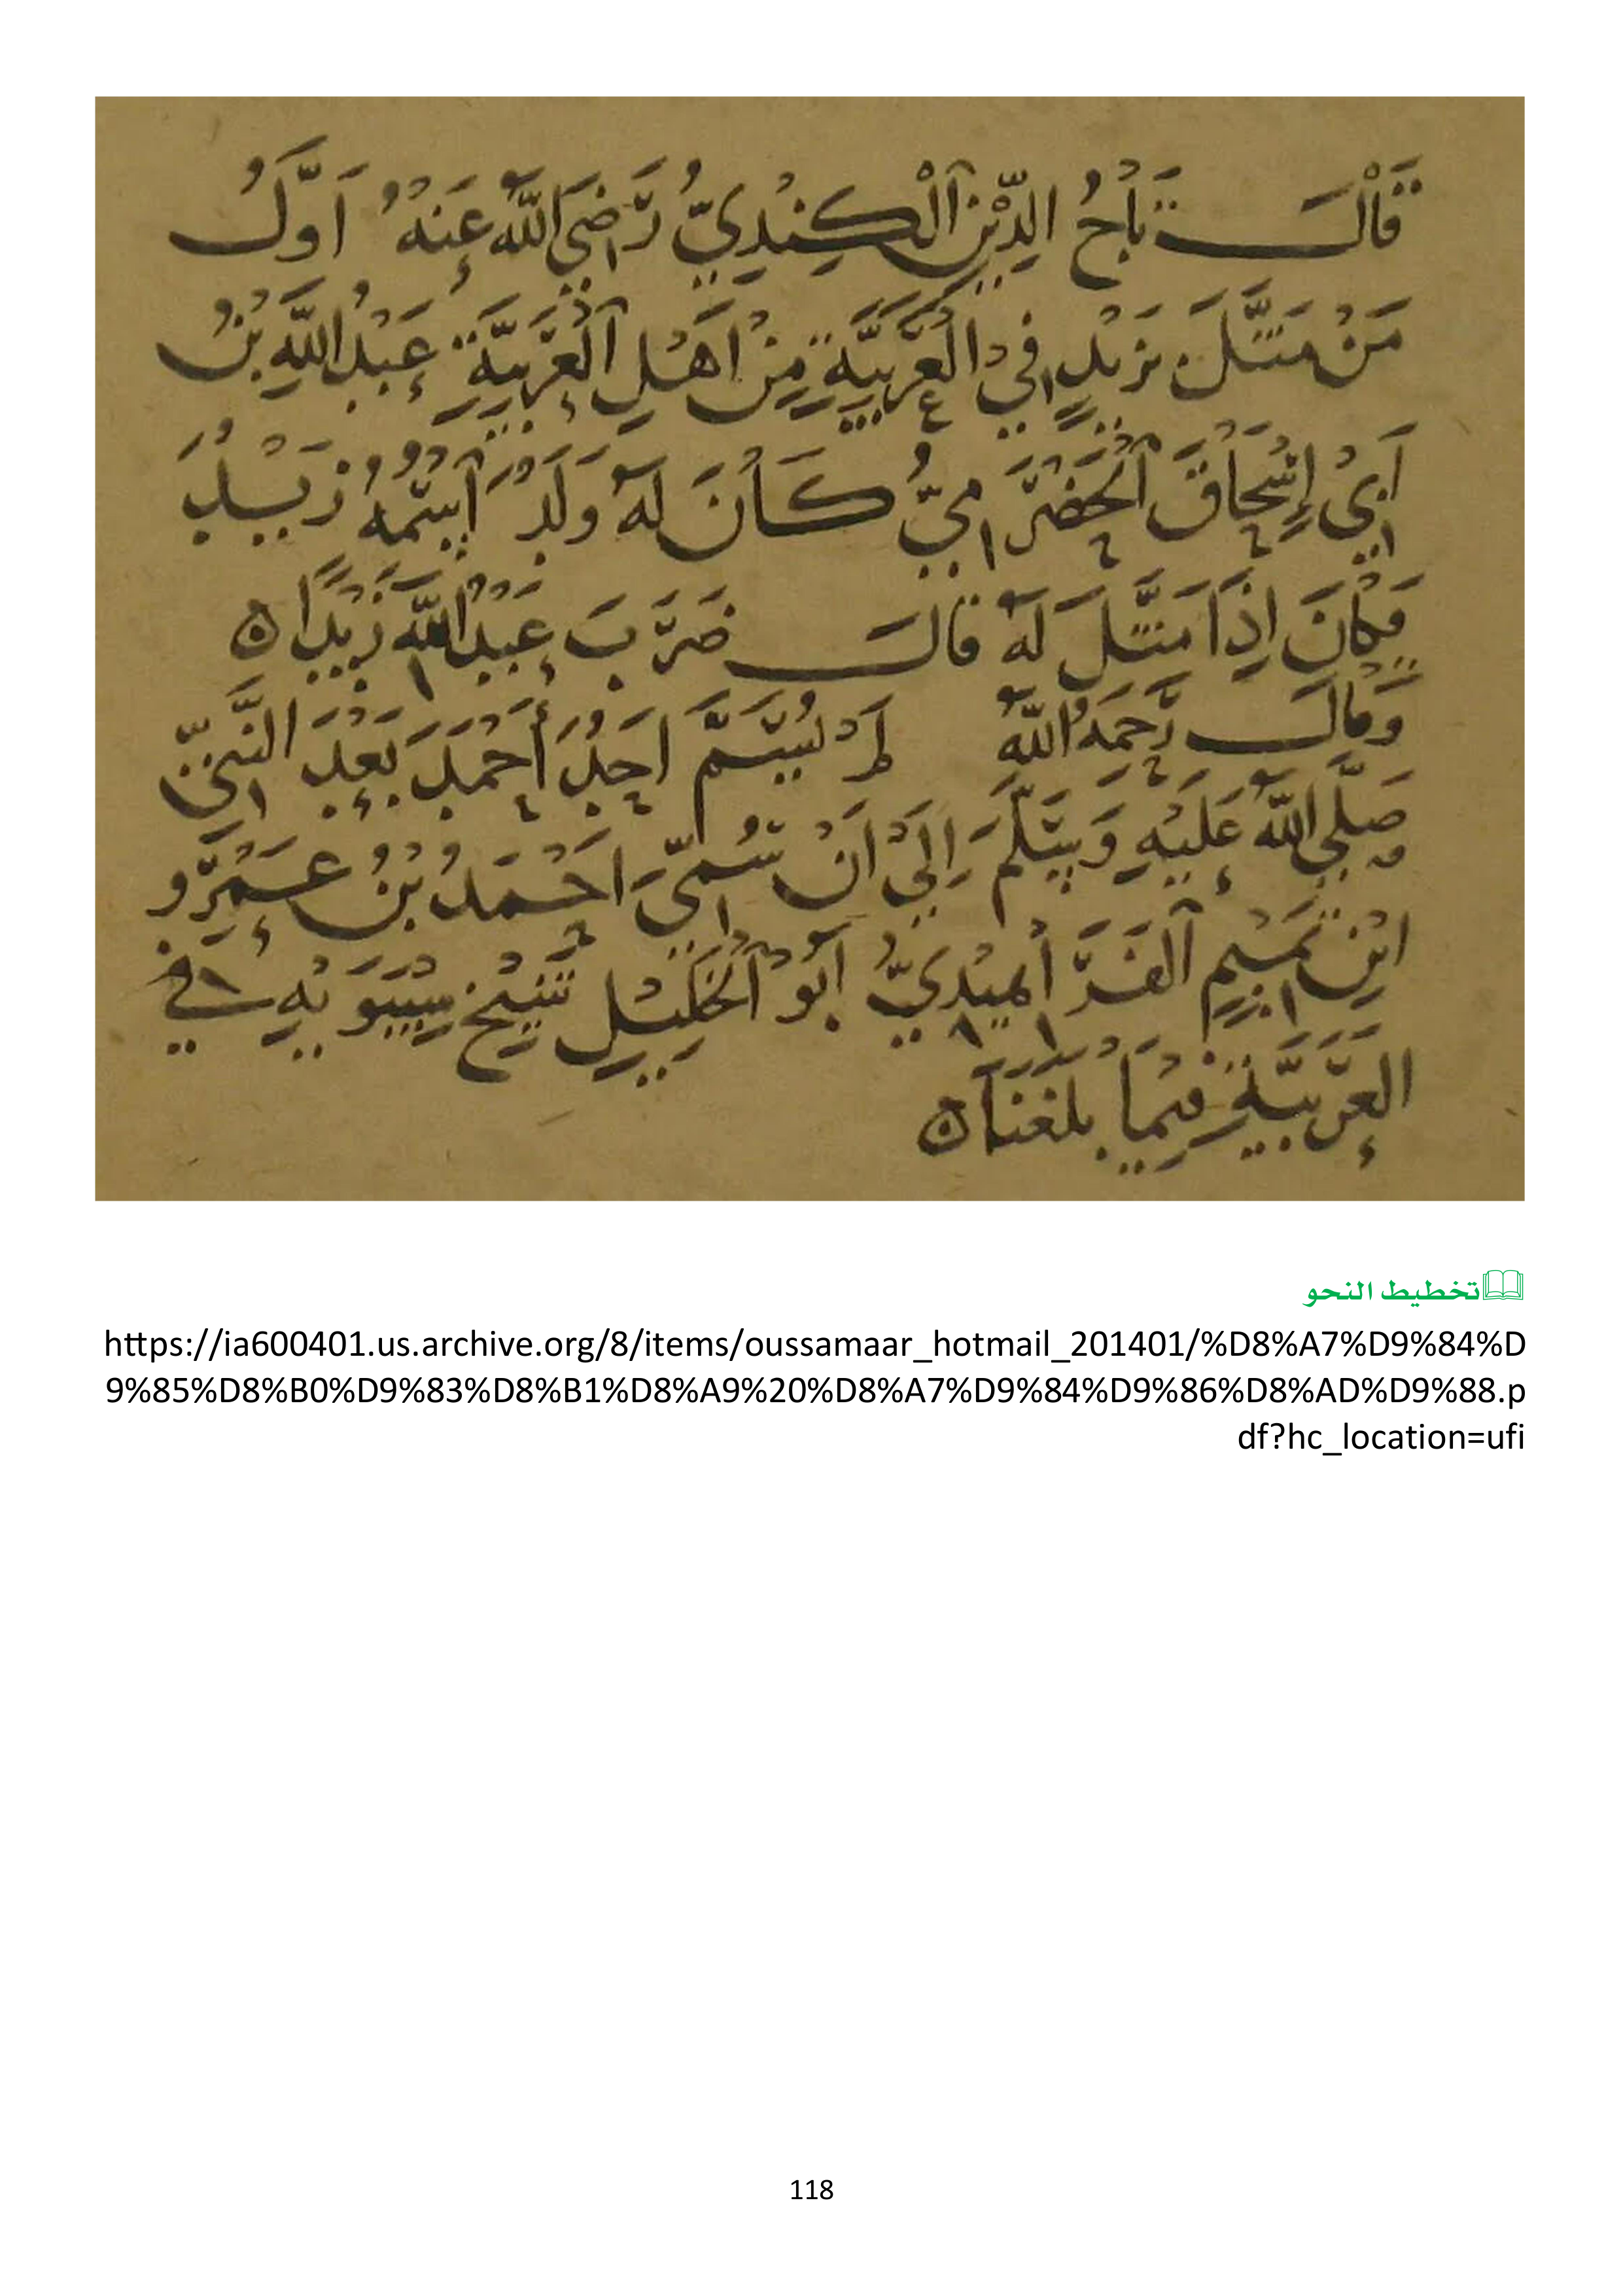 قَالَ تَاجُ الدِّيْنِ اَلْكِنْدِيُّ رَضِيَ اللّٰهُ عَنْهُ اَوَّلُ
مَنْ مَثَّلَ بِزَيْدٍ فِيْ الْعَرَبِيَّةِ مِنْ اَهْلِ اَلْعَرَبِيَّةِ عَبْدُ اللّٰهِ بْنُ
اَبِيْ إِسْحَاقَ اَلْحَضْرَمِيُّ كَاْنَ لَهُ وَلَدٌ اَسْمُهُ زَيْدٌ
فَكَانَ اِذَا مَثَّلَ لَهُ قَالَ ضَرَبَ عَبْدُ اللّٰهِ زَيْدًا ه
وَقَالَ رَحِمَهُ اللّٰهُ لَمْ يُسَمَّ اَحَدٌ أَحْمَدَ بَعْدَ النَّبِيِّ
صَلَّى اللّٰهُ عَلَيْهِ وَسَلَّمَ اِلَىْ اَنْ سُمِّيَ اَحْمَدُ بْنُ عَمْرِو
ابْنِ تَمِيْمٍ اَلْفَرَاْهِيْدِيُّ اَبُوْ اَلْخَلِيْلِ شَيْخِ سِيْبَوَيْهِ فِي
الْعَرَبِيَّةِ فِيْمَا بَلَغَنَا ه
📖تخطيط النحو
https://ia600401.us.archive.org/8/items/oussamaar_hotmail_201401/%D8%A7%D9%84%D
9%85%D8%B0%D9%83%D8%B1%D8%A9%20%D8%A7%D9%84%D9%86%D8%AD%D9%88.p
df?hc_location=ufi
118